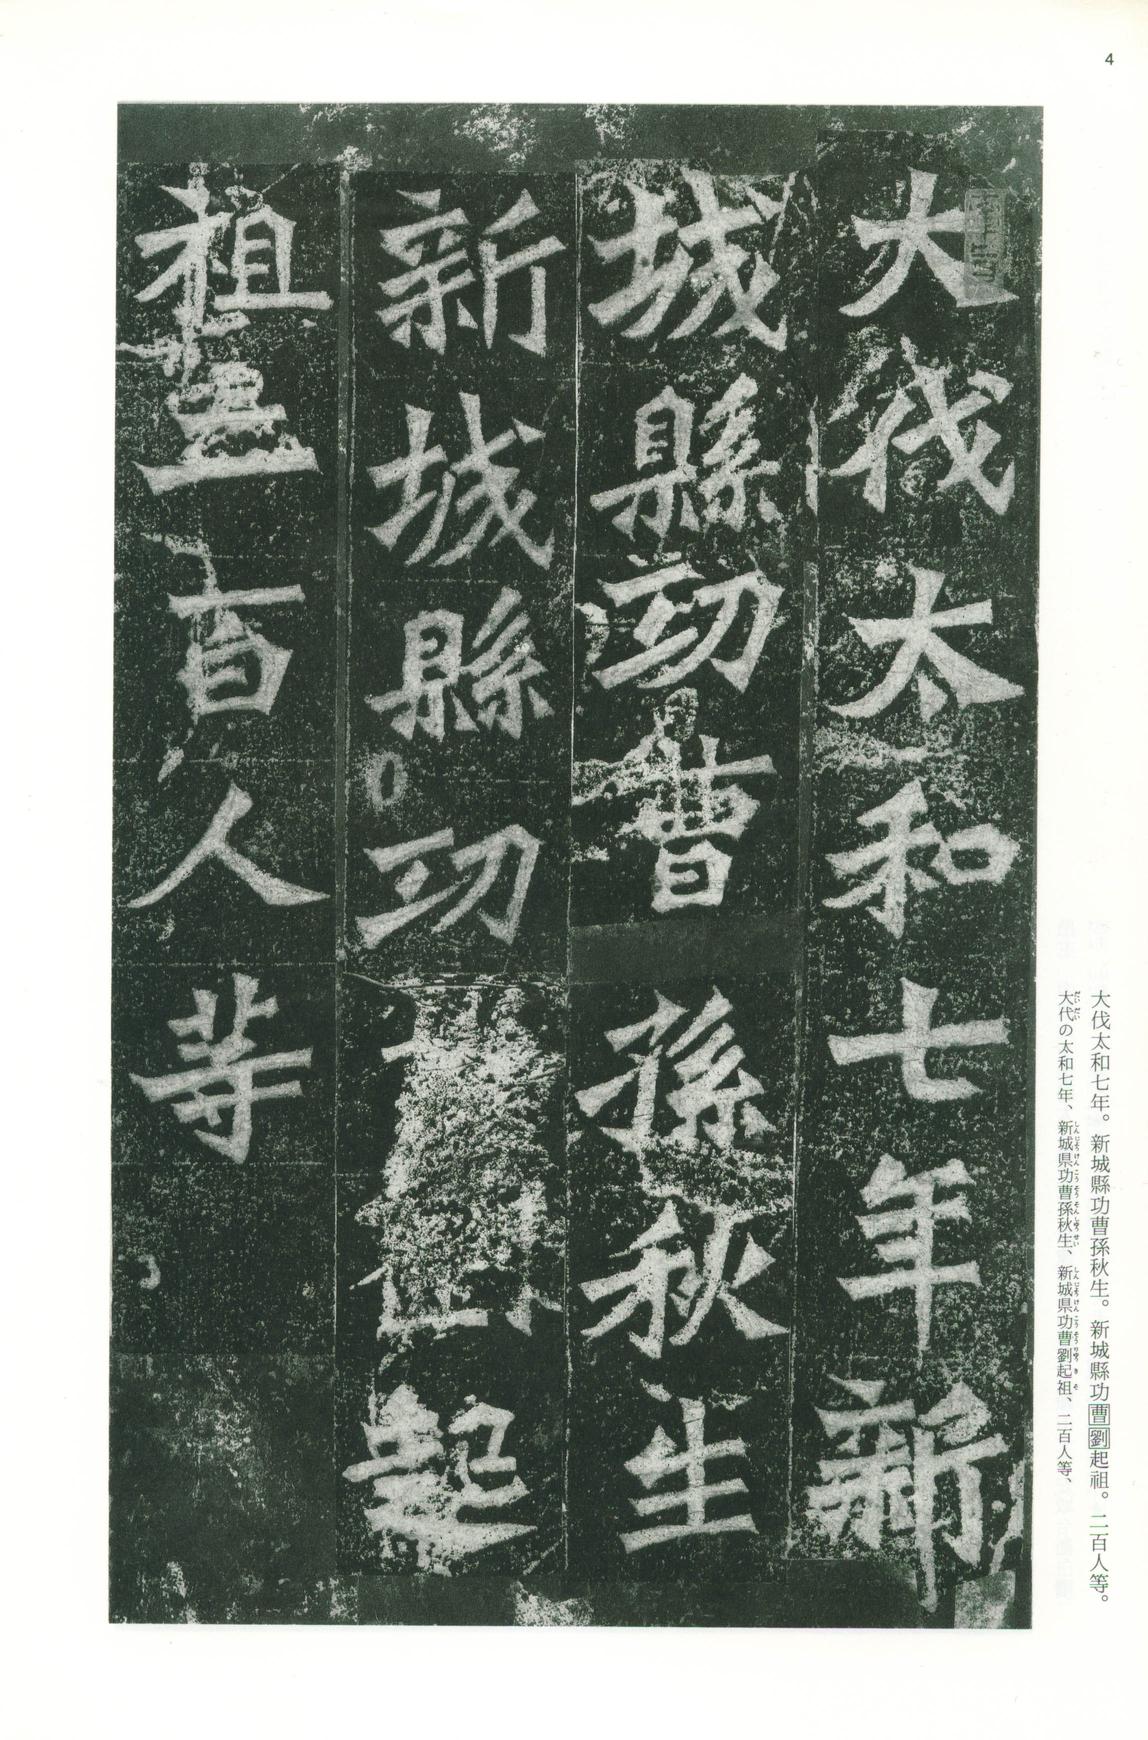 4
大伐太和七年新
城縣功曹孫秋生
新城縣功起
祖二百人等
大伐太和七年。新城縣功曹孫秋生。新城縣功曹劉起祖。二百人等。
大代の太和七年、新城県功曹孫秋生、新城県功曹劉起祖、二百人等、